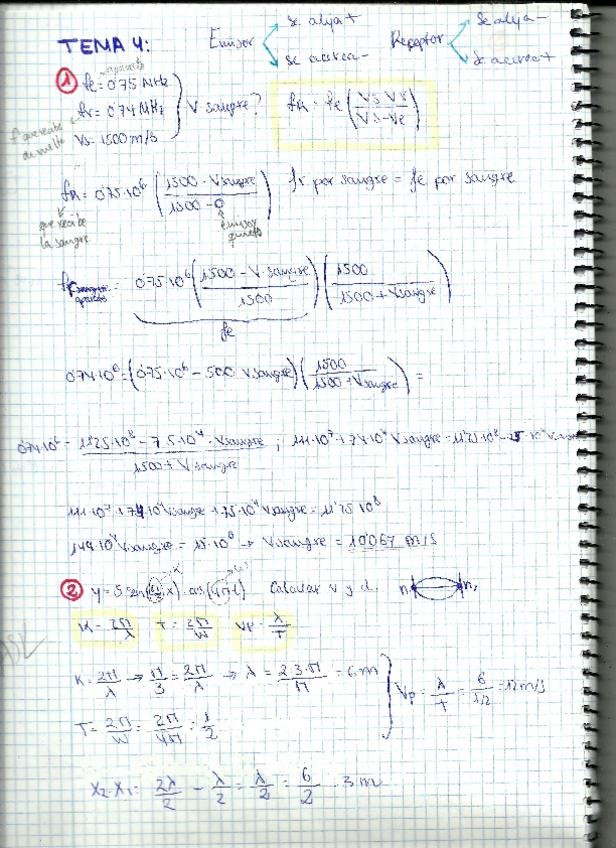 TEMA 4:
Emisor se aleja +
se acerca -
Receptor se aleja -
se acerca +
① fe = 0'75 MHz
fr = 0'74 MHz
Vs = 1500 m/s
V sangre?
fR = fe (Vs - Vr / Vs - Ve)
fR = 0'75·10⁶ (1500 - Vsangre / 1500 - 0) fr por sangre = fe por sangre
que recibe la sangre
emisor quieto
fr = 0'75·10⁶ (1500 - V sangre / 1500) (1500 / 1500 + Vsangre)
quieto
fe
0'74·10⁶ = (0'75·10⁶ - 500 Vsangre) (1500 / 1500 + Vsangre) =
0'74·10⁶ = 11'25·10⁸ - 7'5·10⁴ · Vsangre / 1500 + Vsangre ; 111·10⁷ + 74·10⁴ Vsangre = 11'25·10⁸
111·10⁷ + 74·10⁴ Vsangre + 75·10⁴ Vsangre = 11'25·10⁸
149·10⁴ Vsangre = 15·10⁶ → Vsangre = 10'067 m/s
② y = 5 sen(π/3 x) · cos(4πt) Calcular v y d.
K = 2π/λ T = 2π/W Vp = λ/T
K = 2π/λ → π/3 = 2π/λ → λ = 2·3·π/π = 6 m
Vp = λ/T = 6/1/2 = 12 m/s
T = 2π/W = 2π/4π = 1/2
X₂ - X₁ = 2λ/2 - λ/2 = λ/2 = 6/2 = 3 m